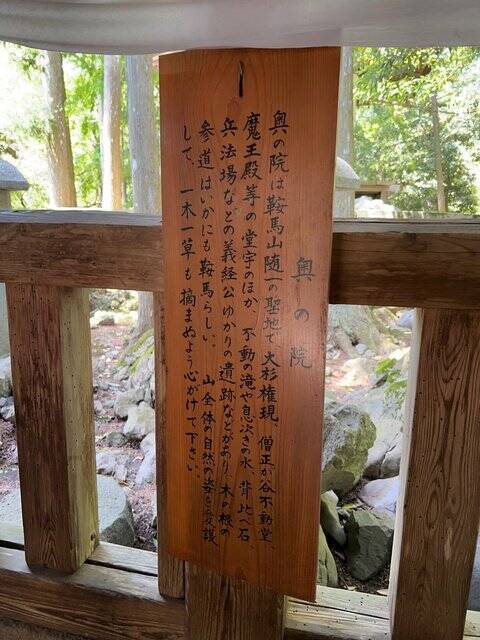 奥の院
奥の院は鞍馬山随一の聖地で、大杉権現、僧正が谷不動堂、
魔王殿等の堂宇のほか、不動の滝や息次ぎの水、背比べ石、
兵法場などの義経公ゆかりの遺跡などがあり、木の根の
参道はいかにも鞍馬らしい。 山全体の自然の姿を愛護
して、一木一草も摘まぬよう心がけて下さい。